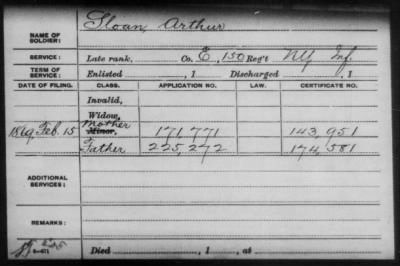 NAME OF SOLDIER: Sloan, Arthur
SERVICE: Late rank, Co. E, 150 Reg't NY Inf.
TERM OF SERVICE: Enlisted , 1 Discharged , 1
DATE OF FILING. CLASS. APPLICATION NO. LAW. CERTIFICATE NO.
Invalid,
Widow,
1869 Feb. 15 Mother Minor, 171,771 143,951
Father 225,272 174,581
ADDITIONAL SERVICES:
REMARKS:
Died , 1 , at